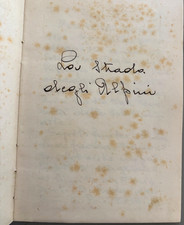 La strada
degli Alpini